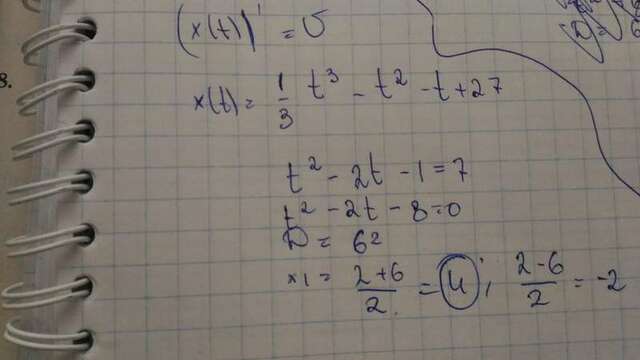 8.
(x(t))' = υ
x(t) = 1/3 t³ - t² - t + 27
t² - 2t - 1 = 7
t² - 2t - 8 = 0
D = 6²
x₁ = (2+6)/2 = 4; (2-6)/2 = -2